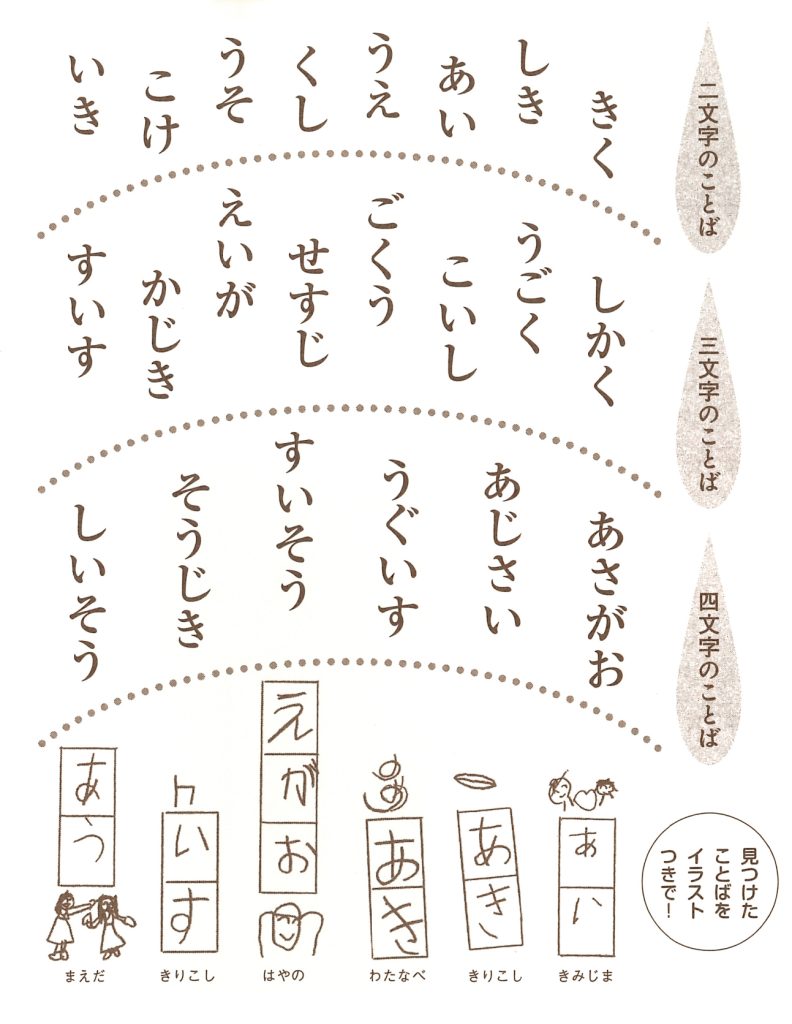 二文字のことば
きく
しき
あい
うえ
くし
うそ
こけ
いき
三文字のことば
しかく
うごく
こいし
ごくう
せすじ
えいが
かじき
すいす
四文字のことば
あさがお
あじさい
うぐいす
すいそう
そうじき
しいそう
見つけた
ことばを
イラスト
つきで！
あい
きみじま
あき
きりこし
あき
わたなべ
えがお
はやの
いす
きりこし
あう
まえだ